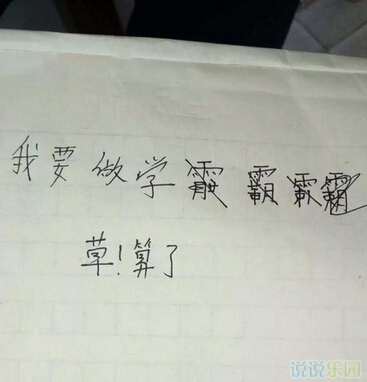 我要做学霸
草!算了
说说乐园